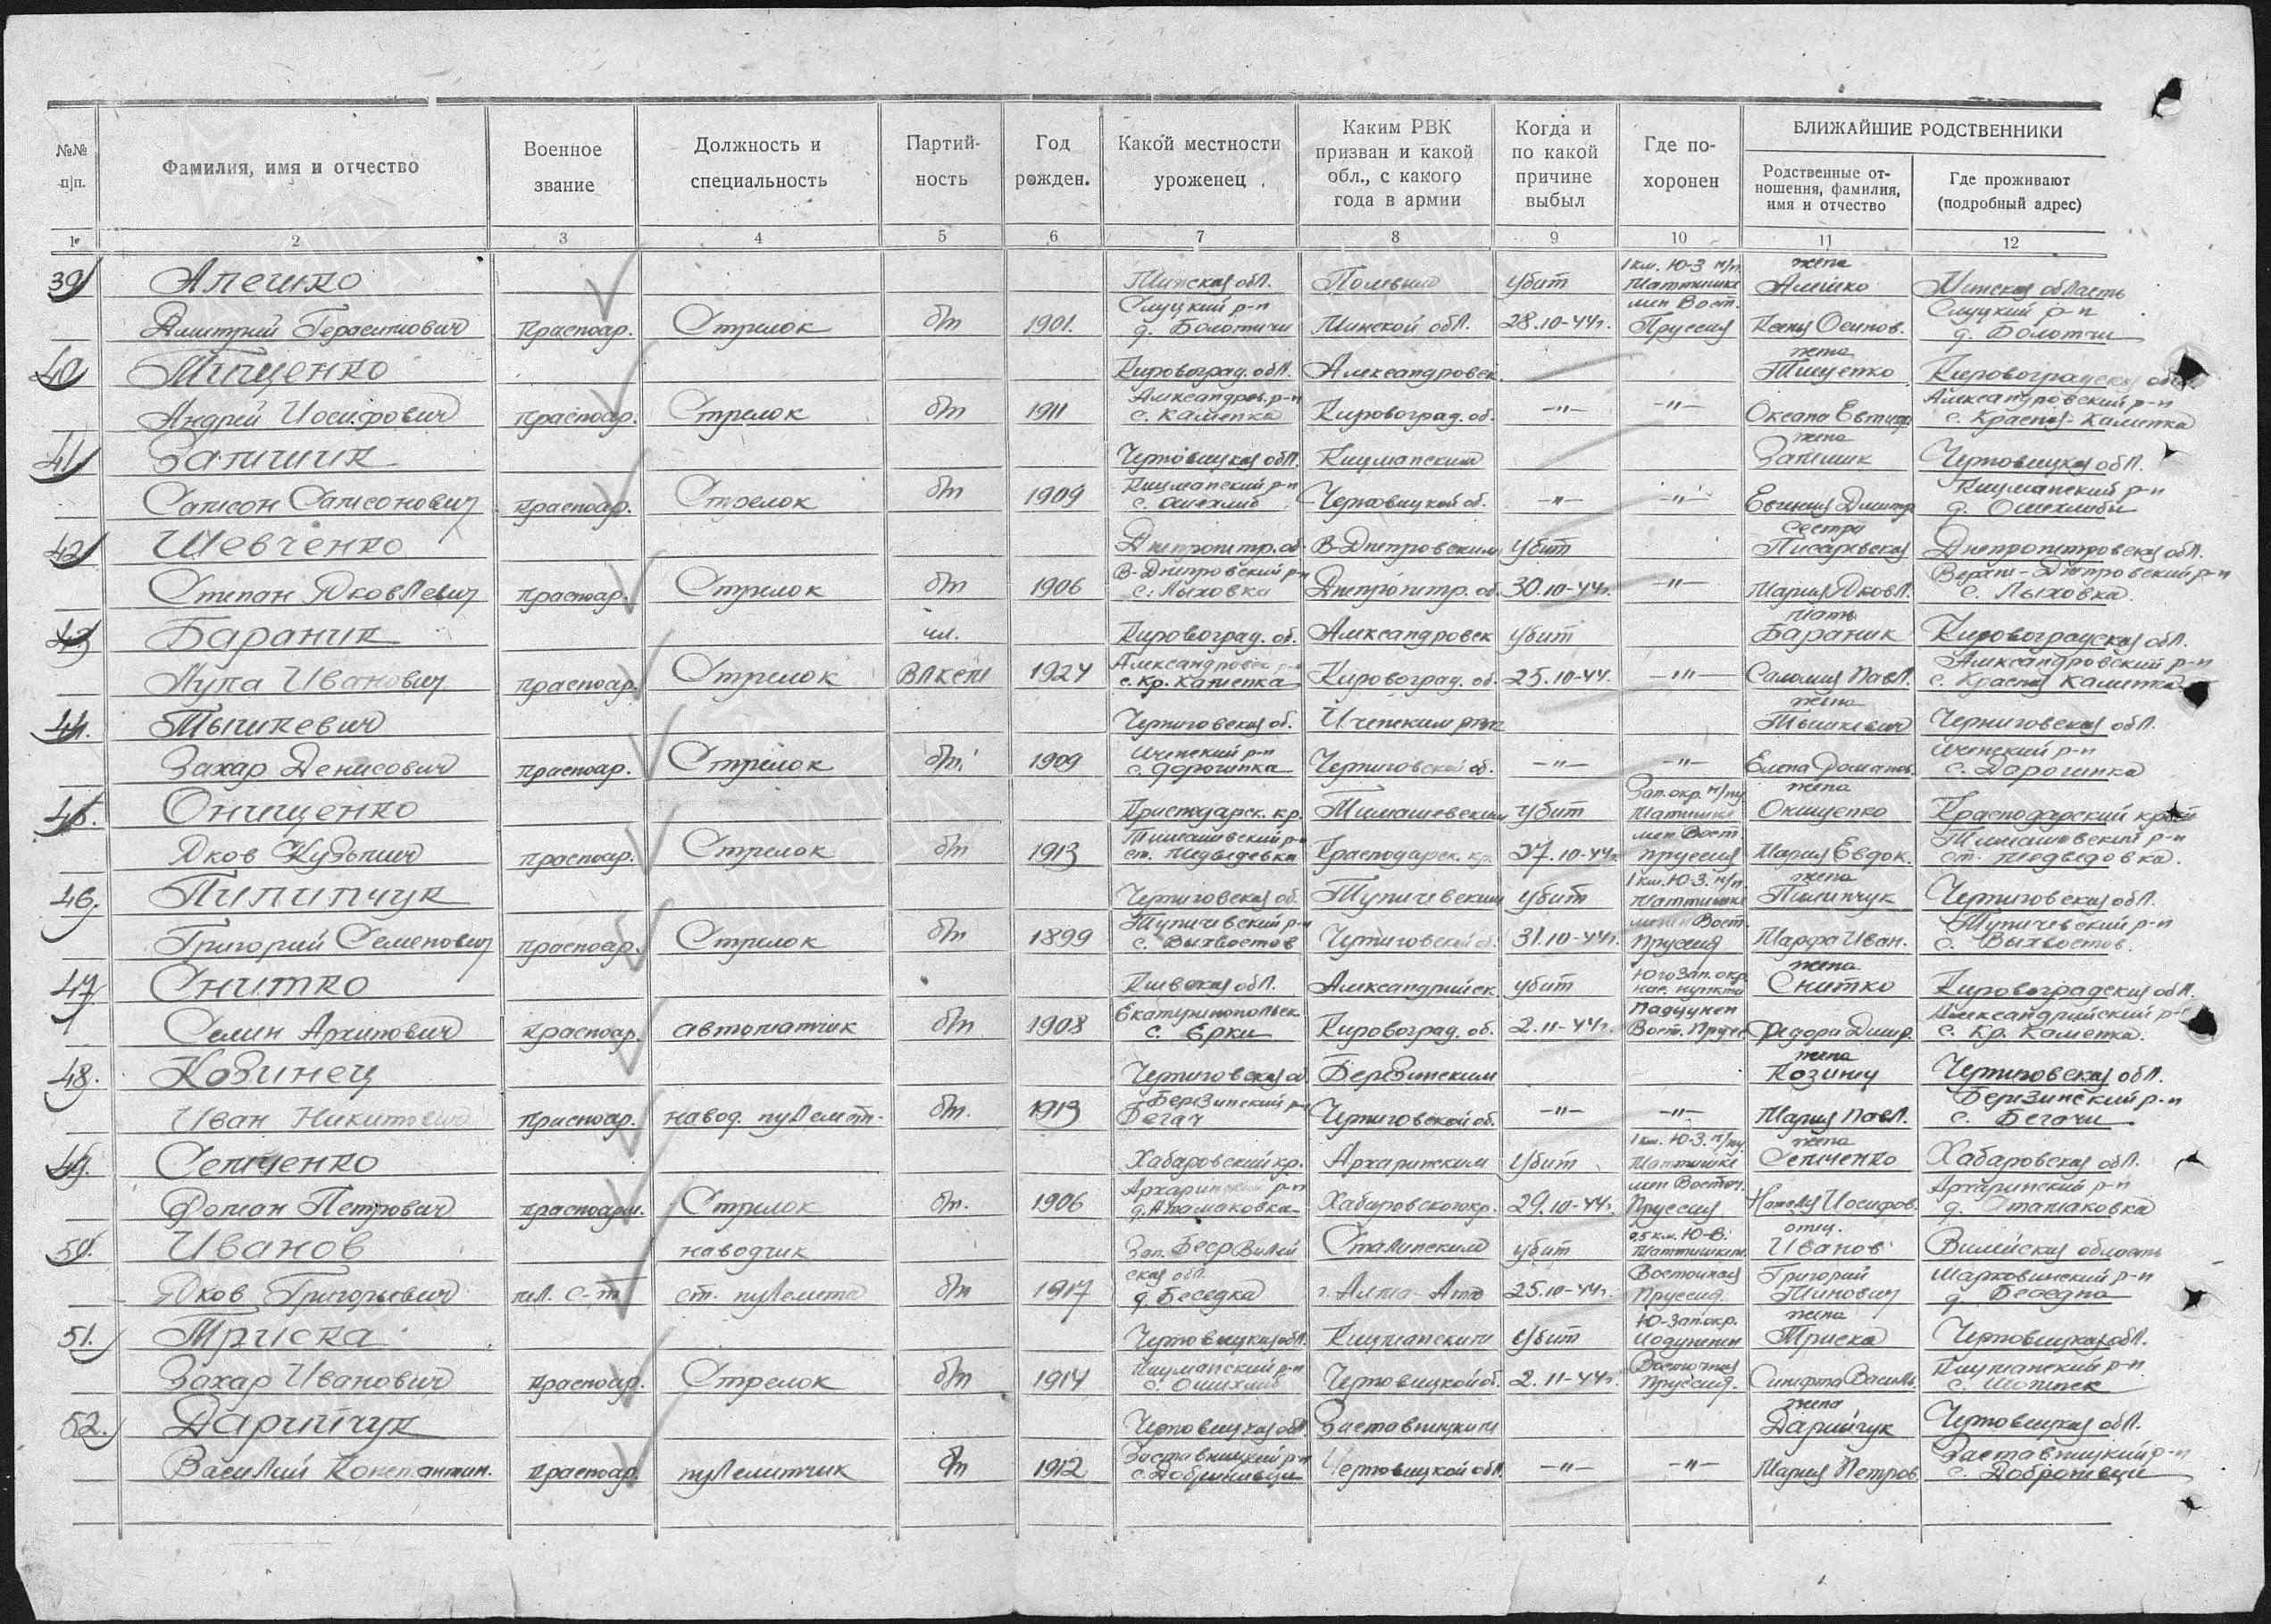 №№ п/п.
Фамилия, имя и отчество
Военное звание
Должность и специальность
Партий-ность
Год рожден.
Какой местности уроженец
Каким РВК призван и какой обл., с какого года в армии
Когда и по какой причине выбыл
Где по-хоронен
БЛИЖАЙШИЕ РОДСТВЕННИКИ
Родственные от-ношения, фамилия, имя и отчество
Где проживают (подробный адрес)
1 2 3 4 5 6 7 8 9 10 11 12
39 Алешко Минская обл. убит 1 км. Ю-З н/п. жена Алешко Минская область
Дмитрий Герасимович Красноар. Стрелок б/п 1901. Слуцкий р-н д. Болотчи Минской обл. 28.10-44г. Вост. Пруссия Осипов. Слуцкий р-н д. Болотчи
40 Тищенко Кировоград. обл. Александровск. жена Тищенко Кировоградская обл.
Андрей Иосифович Красноар. Стрелок б/п 1911 Александров. р-н с. Каменка Кировоград. об. —"— —"— Оксана Александровский р-н с. Красная-Каменка
41 Черновицкая обл. Кицманским жена Черновицкая обл.
Самсон Самсонович Красноар. Стрелок б/п 1909 Кицманский р-н с. Ошехлиб Черновицкой об. —"— —"— Евгения Дмитр. Кицманский р-н д. Ошехлиби
42 Шевченко Днепропетр. об. В-Днепровским убит сестра Писаревская Днепропетровская обл.
Степан Яковлевич Красноар. Стрелок б/п 1906 В-Днепровский р-н с. Лыховка Днепропетр. об. 30.10-44г. —"— Мария Яковл. Верхн-Днепровский р-н с. Лыховка
43 Бараник чл. Кировоград. об. Александровск убит мать Бараник Кировоградская обл.
Лука Иванович Красноар. Стрелок ВЛКСМ 1924 Александровск р-н с. Кр. Каменка Кировоград. об. 25.10-44. —"— Саломия Павл. Александровский р-н с. Красная Каменка
44. Тышкевич Черниговская об. Ичнским жена Тышкевич Черниговская обл.
Захар Денисович Красноар. Стрелок б/п. 1909 Ичнский р-н с. Дорогинка Черниговской об. —"— —"— Елена Романов. Ичнский р-н с. Дарогинка
45. Онищенко Краснодарск. кр. Тимашевским убит Зап. окр. н/пу жена Онищенко Краснодарский край
Яков Кузьмич Красноар. Стрелок б/п 1913 Тимашовский р-н ст. Медведевка Краснодарск. кр. 27.10-44г. Вост Пруссия Мария Евдок. Тимашовский р-н ст. Медведовка.
46. Пилипчук Черниговская об. Тупичевским убит 1 км. Ю-З. н/п. жена Пилипчук Черниговская обл.
Григорий Семенович Красноар. Стрелок б/п 1899 Тупичевский р-н с. Выхвостов Черниговской об. 31.10-44г. Вост. Пруссия Марфа Иван. Тупичевский р-н с. Выхвостов.
47 Снитко Киевская обл. Александрийск убит Юго Зап. окр. нас. пункта жена Снитко Кировоградская обл.
Семин Архипович Красноар. автоматчик б/п 1908 Екатеринопольск с. Ерки Кировоград. об. 2.11-44г. Вост. Прусс Федора Дмитр. Александрийский р-н с. Кр. Каменка.
48. Козинец Черниговская об Березинским жена Козинец Черниговская обл.
Иван Никитович Красноар. навод. пулемет. б/п. 1913 Березинский р-н Бегач Черниговской об. —"— —"— Мария Павл. Березинский р-н с. Бегачи
49. Семченко Хабаровский кр. Архаринским убит 1 км. Ю-З. н/пу жена Семченко Хабаровская обл.
Роман Петрович Красноарм. Стрелок б/п. 1906 Архаринский р-н д. Атамановка Хабаровского кр. 29.10-44г. Восточ. Пруссия Иосифов. Архаринский р-н д. Атамановка
50. Иванов наводчик Зап. Сталинским убит 0,5 км. Ю-В. отец. Иванов Вилейская область
Яков Григорьевич мл. с-т ст. пулемета б/п 1917 ская обл. д. Беседка г. Алма-Ата 25.10-44г. Восточная Пруссия. Григорий Шарковщинский р-н д.
51. Триска Черновицкая обл. Кицманским убит Ю-Зап. окр. жена Триска Черновицкая обл.
Захар Иванович Красноар. Стрелок б/п 1914 Кицманский р-н с. Ошихлиб Черновицкой об. 2.11-44г. Восточная Пруссия. Василь. Кицманский р-н с.
52. Дарийчук Черновицкая обл. Заставницким жена Дарийчук Черновицкая обл.
Василий Константин. Красноар. пулеметчик б/п 1912 Заставницкий р-н с. Добриневци Черновицкой обл. —"— —"— Мария Петров. Заставницкий р-н с. Доброневци